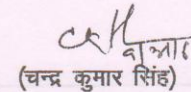 (चन्द्र कुमार सिंह)